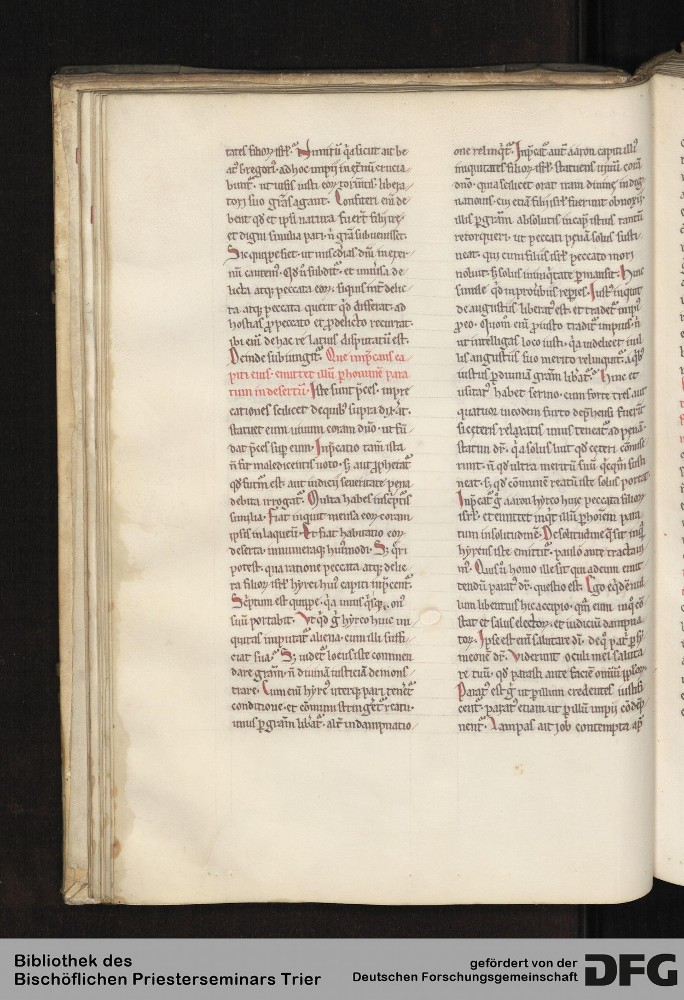 tates filioꝝ isrł. Nimirū q̄a sicut ait be
atꝰ gregoriꝰ. ad hoc impii in et̄nū crucia
bunt᷑. ut uisis iusti eoꝝ tormentis libera
tori suo gr̄as agant. Confiteri eni de
bent qd et ipsi natura fuer̄t filii ire.
et digni similia pati. n̄ gr̄a subuenisset.
Sic quippe fiet. ut misc̄dias dn̄i in eter
nū cantent.
licta atq; peccata eoꝝ. siquis int̄ delic
ta atq; peccata querit qd differat. ad
hostias ꝓ peccato et ꝓ delicto recurrat.
ibi eni de hac re latius disputatū est.
Deinde subiungit᷑. Que imp̄cans ca
piti eius. emittet illū p̄ hominē para
tum in desertū. Iste sunt p̄ces. inpre
cationes scilicet de quibꝰ supra dix̄it.
statuet eum uiuum coram dn̄o. ut fū
dat p̄ces sup eum. Inp̄catio tam̄ ista
n̄ fit maledicentis uoto. ꝫ aut ꝓphetat᷑
qd futm̄ est. aut iudicii seueritate pena
debita irrogat᷑. Multa habes in sc̄pt̄is
similia. Fiat inquit mensa eoꝝ coram
ipsis in laqueū. Et fiat habitatio eoꝝ
deserta. innumeraq; huꝰmodi. Sꝫ q̄ri
potest. qua ratione peccata atq; delic
ta filioꝝ isrł hyrci huiꝰ capiti imp̄cent᷑.
Sc̄ptum est quippe. q̄a unus q̄sq; onꝰ
suū portabit. Vt qd g̊ hyrco huic ini
quitas imputat᷑ aliena. cum illi suffi
ciat sua. Sꝫ uidet᷑ locus iste commen
dare gr̄am. n̄ diuinā iusticiā demons
trare. Cum eni hyrcꝰ uterq; pari tenet᷑
conditione. et cōmuni stringet᷑ reatu.
unus p̄ gr̄am lib̄at᷑. alt̄ in dampnatio
one relinq̄t᷑. Inp̄cat᷑ aut̄ aaron capiti illiꝰ
iniquitates filioꝝ isrł. statuens uiuū corā
dn̄o. quia scilicet orat nam diuine indig
nationis. cui etiā filii isrł fuerunt obnoxii.
illis p̄ gr̄am absolutis in cap̄ istius tantū
retorqueri. ut peccati penā solus susti
neat. qui cum filiis isrł peccato mori
noluit. ꝫ solus in iniq̄tate p̄mansit. Huic
simile qd in prouerbiis rep̄ies. Iustꝰ inquit
de angustiis liberatꝰ est. et tradet᷑ impiꝰ
ꝓ eo. Quom̄ eni ꝓ iusto tradit᷑ impius. n̄
ut intelligas loco iusti. q̄a uidelicet in il
lis angustiis suo merito relinquit᷑. a q̄bꝰ
iustus p̄ diuinā gr̄am lib̄at᷑. Hinc et
usitatꝰ habet sermo. cum forte tres aut
quatuor in eodem furto dep̄hensi fuerūt
si ceteris relaxatis unus teneat᷑ ad penā.
statim dr̄. q̄a solus luit qd ceteri cōmise
runt. n̄ qd ultra meritū suū q̄cq̄m susti
neat. ꝫ qd cōmune reatū iste solus portat.
Inp̄cat᷑ g̊ aaron hyrco huic peccata filioꝝ
isrł. et emittet inq̄t illū p̄ hoiem para
tum in solitudinē. De solitudine q̄ sit in q̄
hyrcus iste emittit᷑. paulo ante tractaui
mꝰ. Quis n̄ homo ille sit qui ad eum emit
tendū paratꝰ dr̄. questio est. Ego eq̄dē nul
lum libentius hic accipio. q̄m eum in q̊ cō
stat et salus electoꝝ. et iudiciū dampna
toꝝ. Ipse est eni salutare dī. de q̊ p̄at᷑ p̄ sy
meonē dr̄. Viderunt oculi mei saluta
re tuū. qd parasti ante faciē omniū ipsoꝝ.
Paratꝰ est g̊ ut p̄ illum credentes iustifi
cent᷑. paratꝰ etiam ut p̄ illū impii cōdēp
nent᷑. Lampas ait iob contempta ap̄
Bibliothek des
Bischöflichen Priesterseminars Trier
gefördert von der
Deutschen Forschungsgemeinschaft
DFG